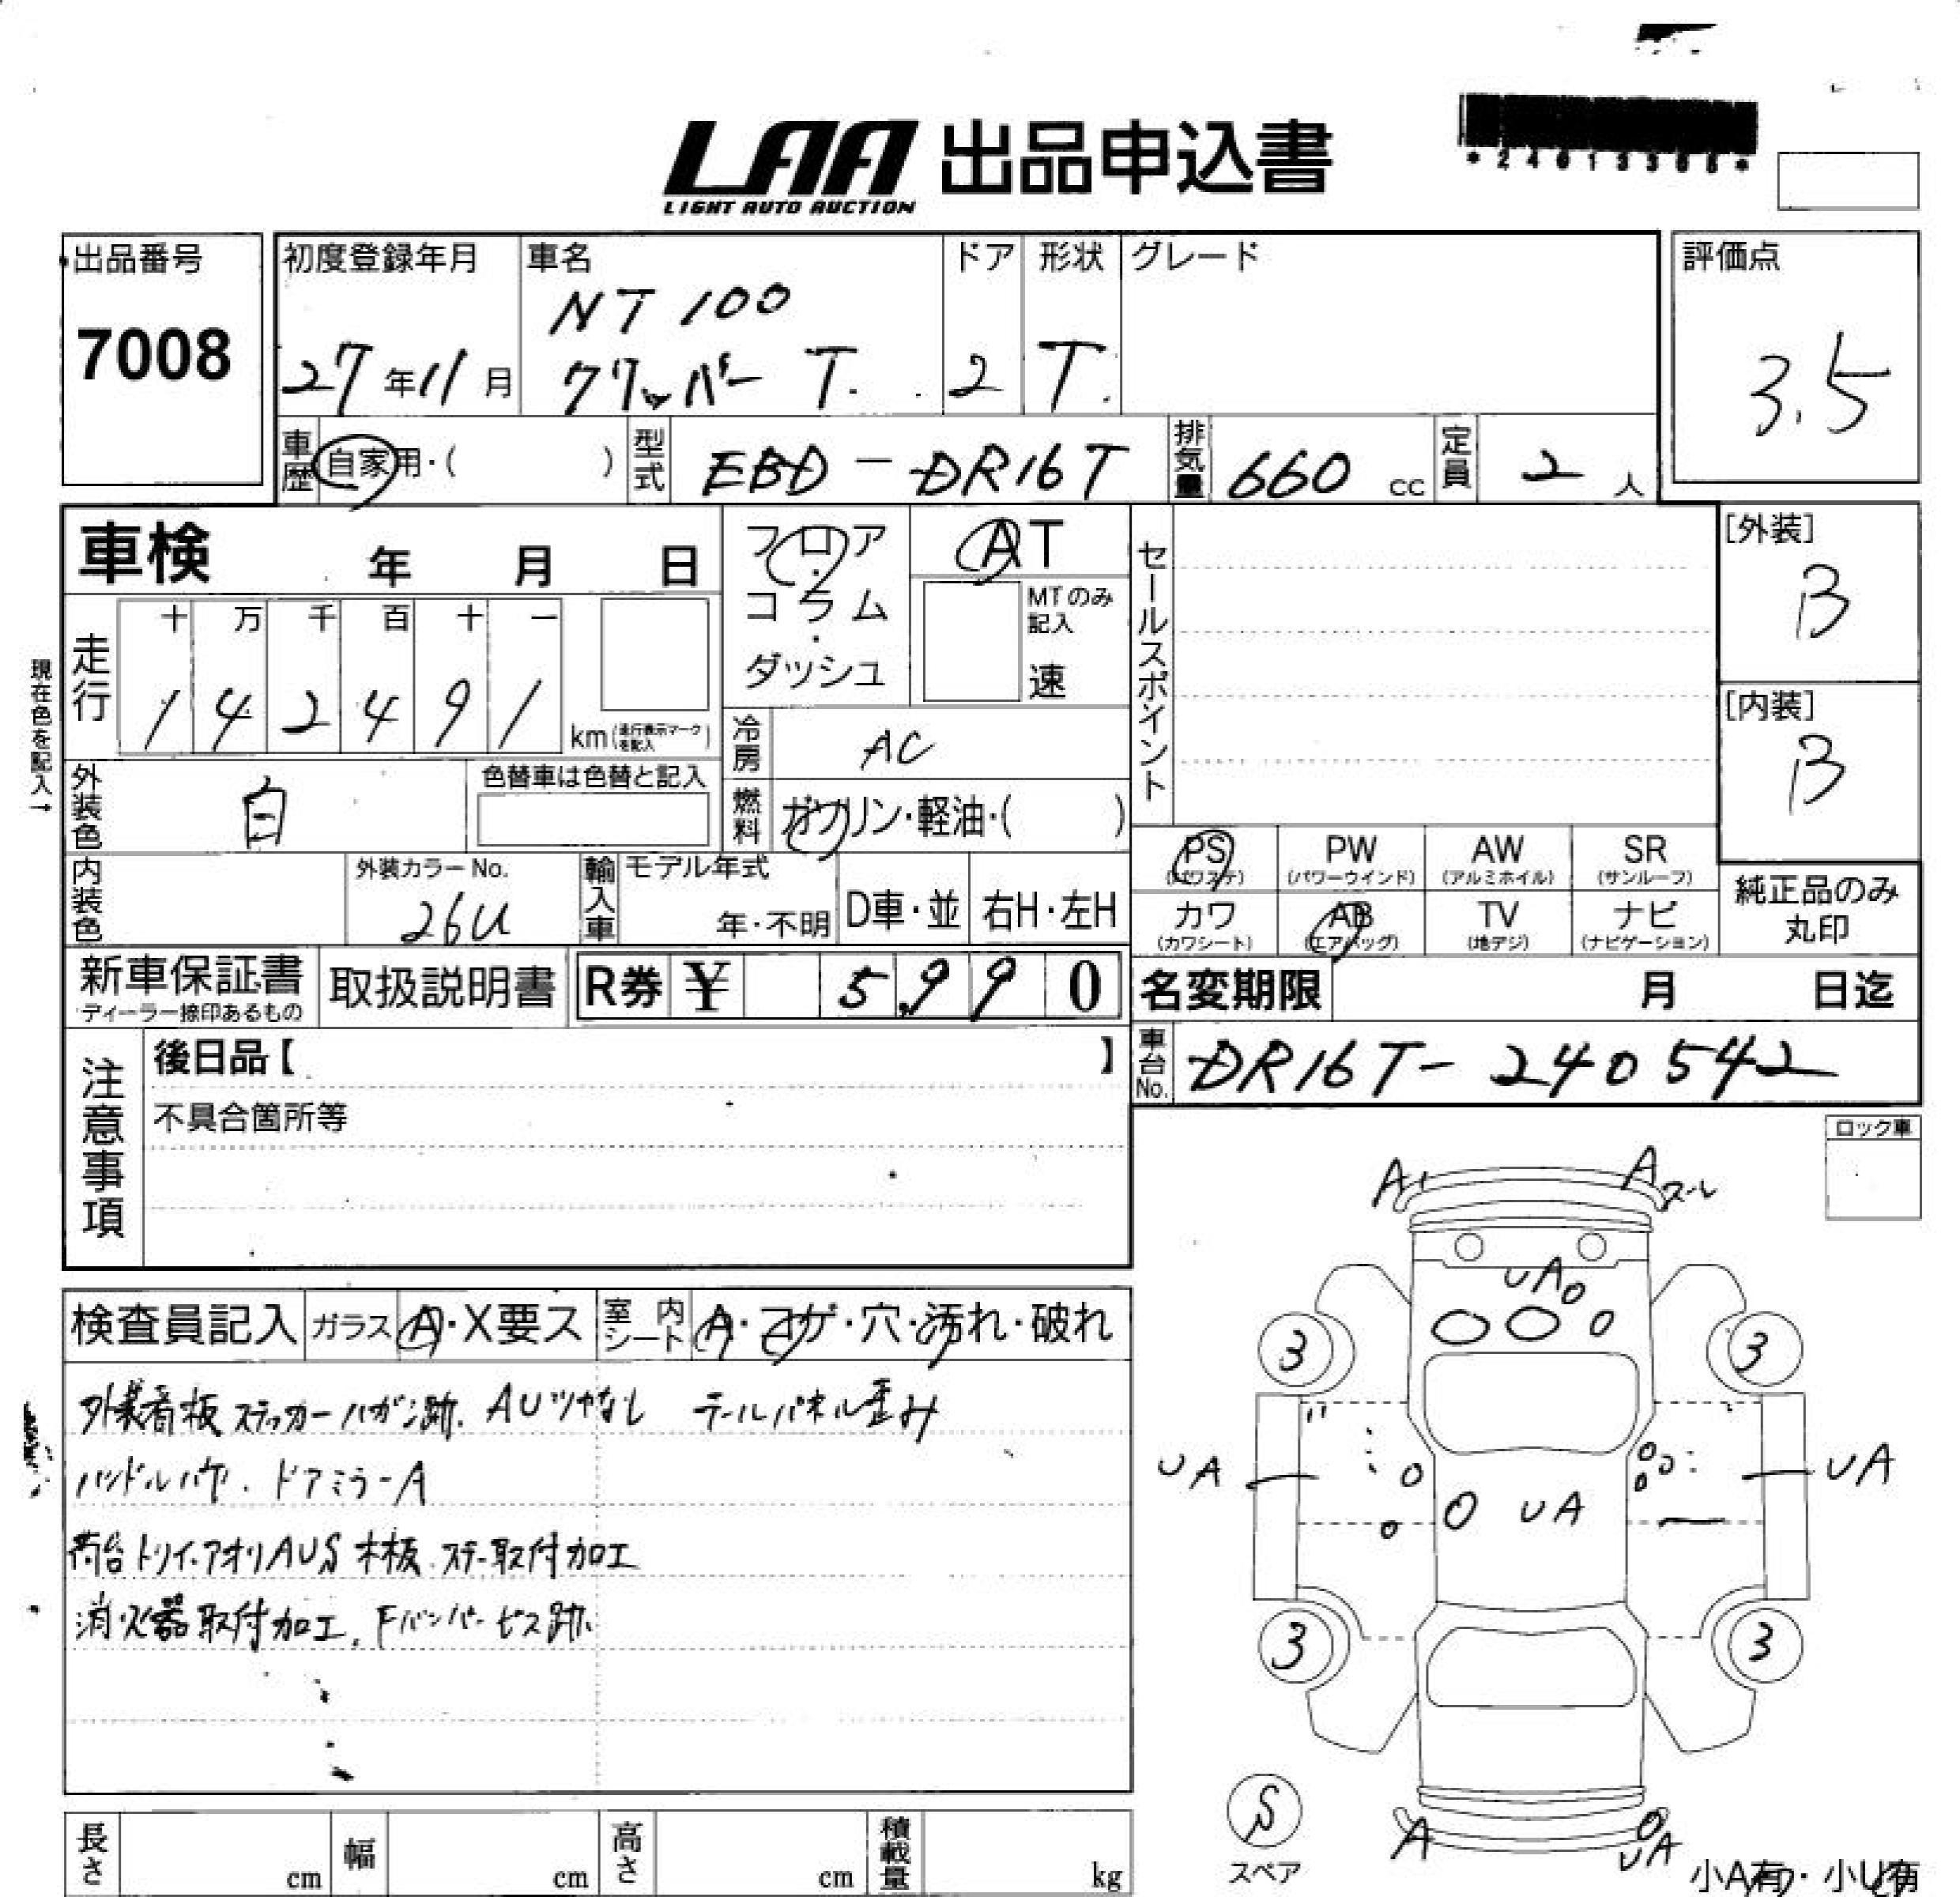 LAA 出品申込書
LIGHT AUTO AUCTION
出品番号
7008
初度登録年月
27年11月
車名
NT100
クリッパー T.
ドア
2
形状
T.
グレード
評価点
3.5
車歴 自家用・( )
型式 EBD-DR16T
排気量 660 cc
定員 2人
車検 年 月 日
フロア・コラム・ダッシュ
AT
MTのみ記入
速
セールスポイント
[外装]
B
[内装]
B
現在色を記入→
走行
十 万 千 百 十 一
1 4 2 4 9 1
km (走行表示マークを記入)
冷房 AC
外装色 白
色替車は色替と記入
燃料 ガソリン・軽油・( )
内装色
外装カラーNo.
26U
輸入車
モデル年式
年・不明
D車・並
右H・左H
PS
(パワステ)
PW
(パワーウインド)
AW
(アルミホイル)
SR
(サンルーフ)
カワ
(カワシート)
AB
(エアバッグ)
TV
(地デジ)
ナビ
(ナビゲーション)
純正品のみ
丸印
新車保証書
ディーラー捺印あるもの
取扱説明書
R券 ¥ 5,990
名変期限 月 日迄
車台No. DR16T-240542
注意事項
後日品【 】
不具合箇所等
ロック車
検査員記入
ガラス A・X要ス
室内シート A・コゲ・穴・汚れ・破れ
外装看板ステッカーハガシ跡. AUツヤなし テールパネル歪み
ハンドルハゲ. ドアミラーA
荷台トリイ・アオリAUS 木板.ステー取付加工
消火器取付加工. Fバンパービス跡
A A スレ
UA
3 3
UA UA UA
3 3
S
スペア
A UA
小A有・小U有
長さ cm
幅 cm
高さ cm
積載量 kg